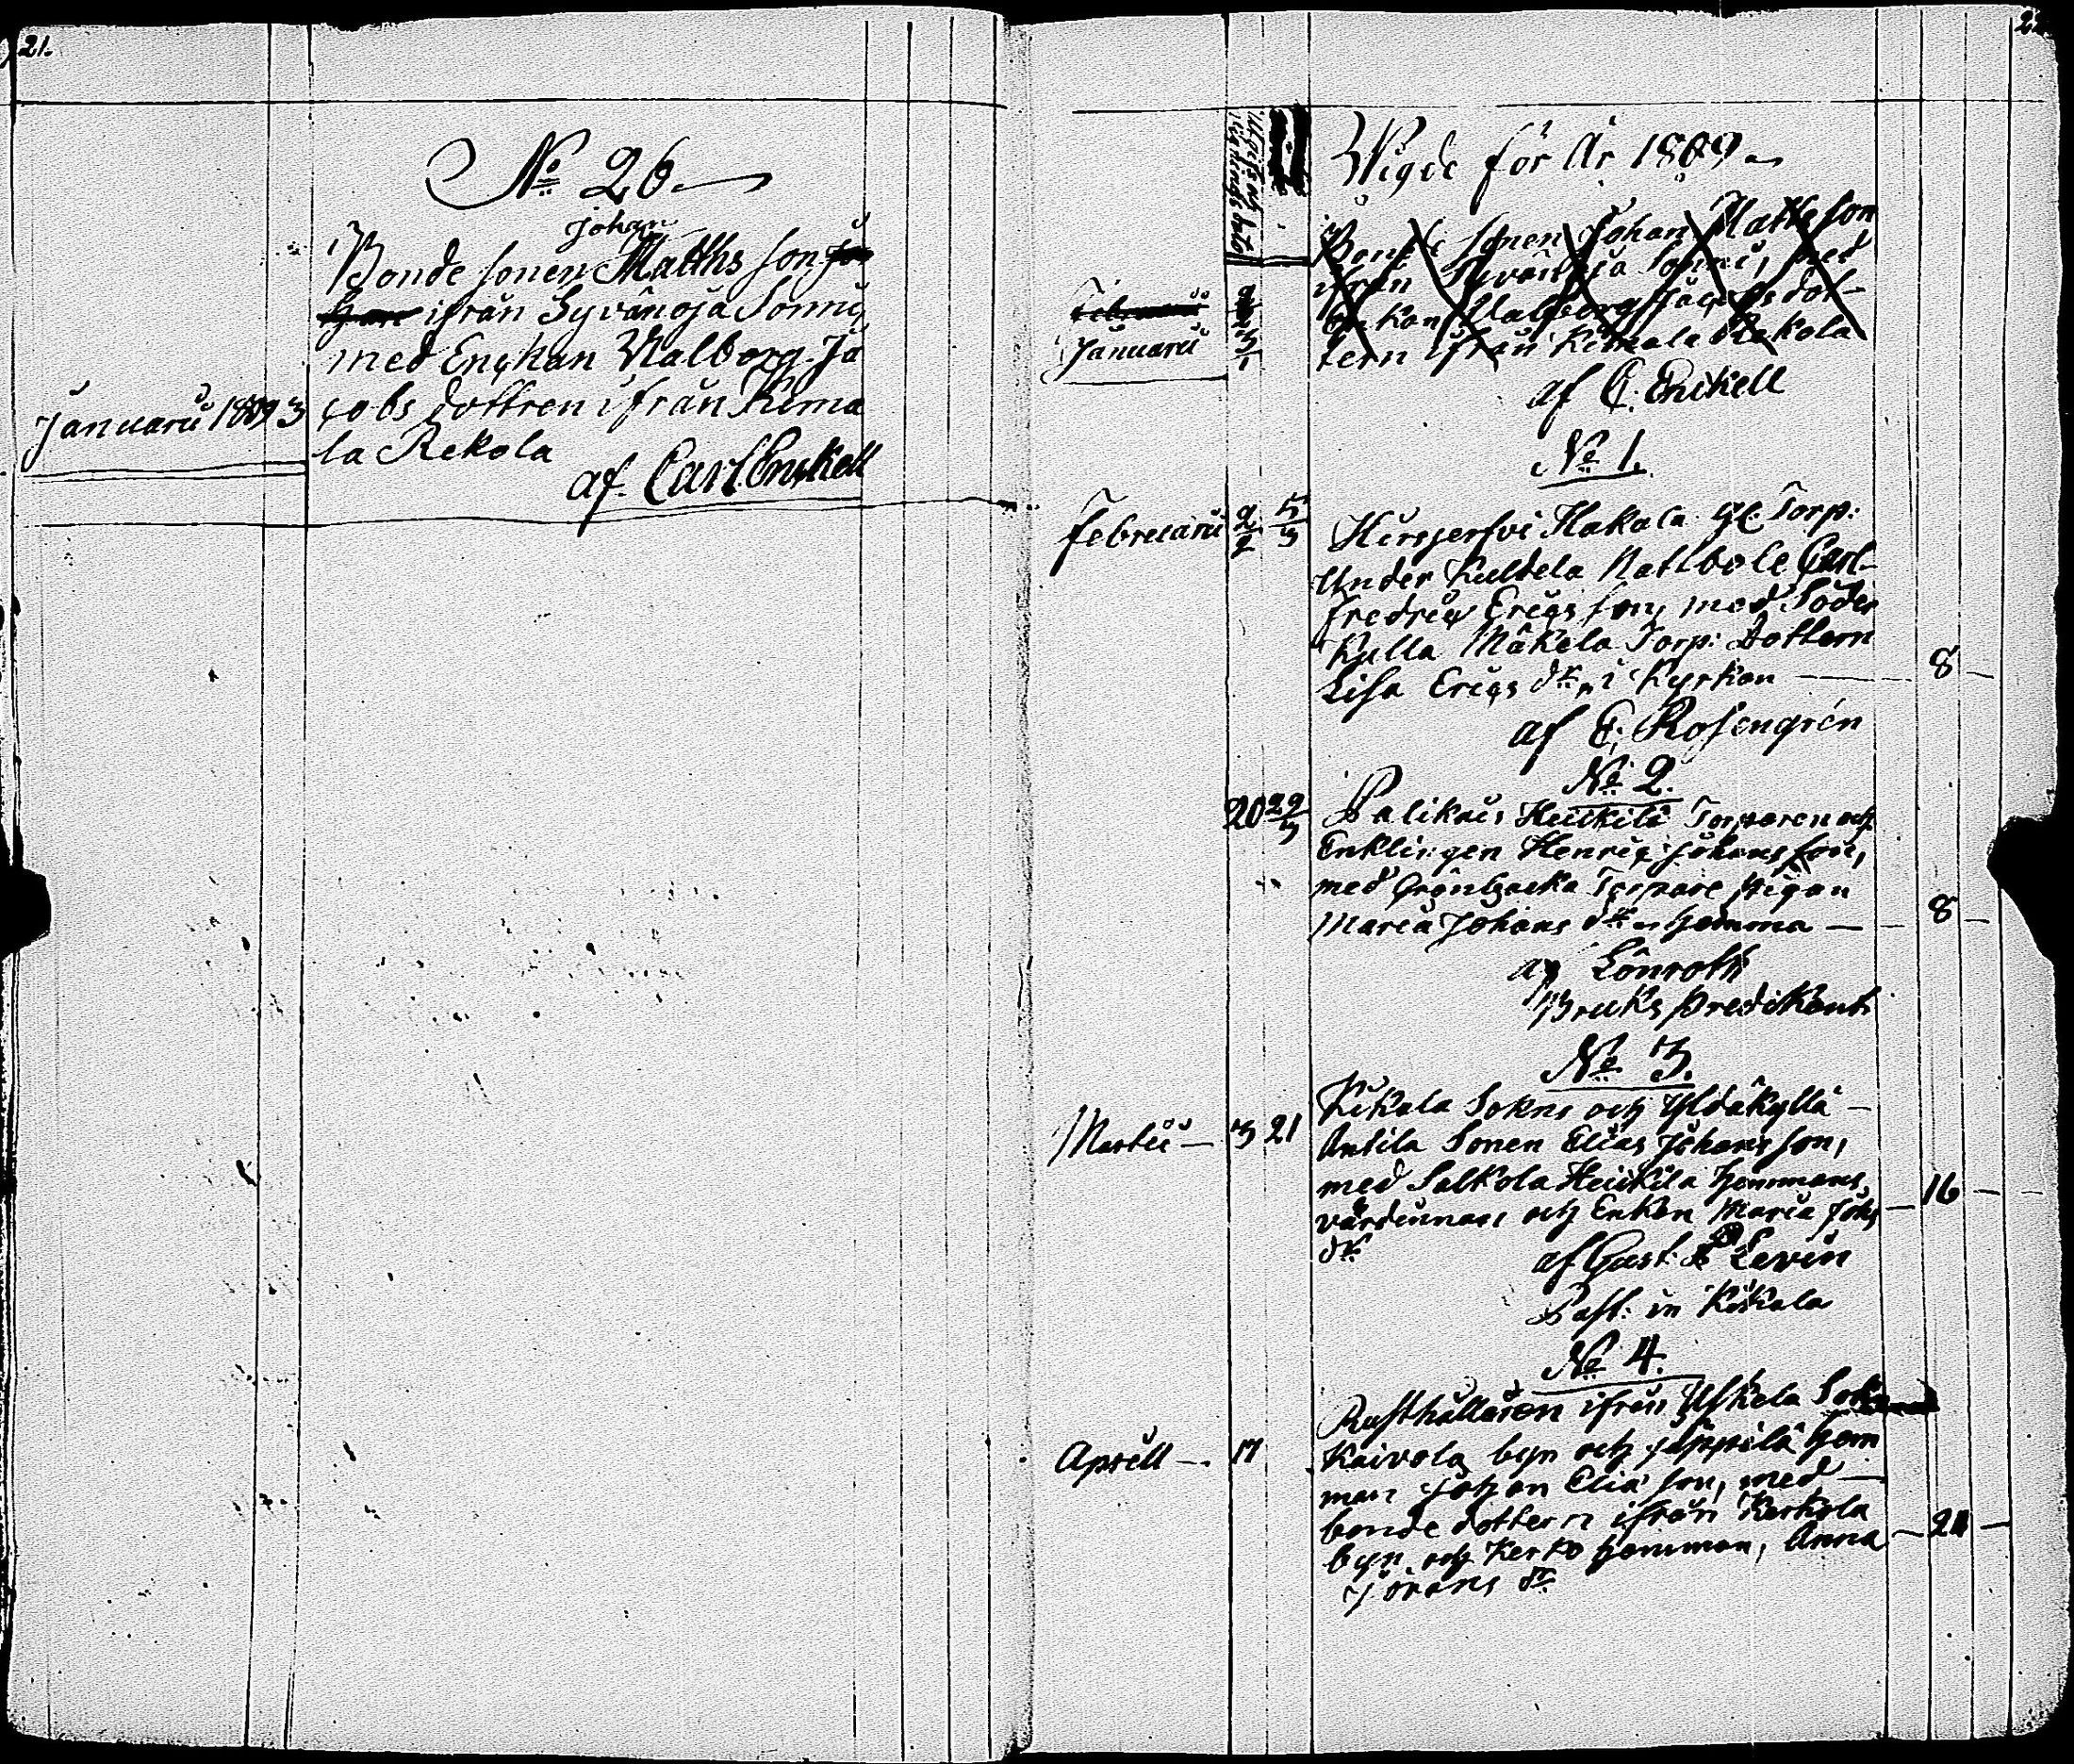 21.
No 26
Johan
Bonde sonen Matths son
ifrån Syvänoja Sonni,
med Enckan Valborg Ja
Januarii 1809 3 cobs dottren ifrån Kima
la Rekola
af. Carl Enckell
22
Wigde för År 1809
Bonde sonen Johan Matts son
ifrån Syvänoja Sonni, med
Enkan Valborg Jacobs dot-
Januarii tern ifrån Kimala Rekola
af C. Enckell
No 1.
Februarii Hirsjerfvi Hakala Torp:
Under Kultela Carl
Fredric Erics son, med Söder
Kulla Mäkelä Torp: Dottern
Lisa Erics dr, i Kyrkan — 8 —
af E. Rosengrén
No 2.
20 22/3 Palikais Heickilä Torparen och
Enklingen Henric Johans son,
med Grönbacka Torpare pigan
Maria Johans dr hemma — 8 —
af Lönroth
Bruks Predikant
No 3.
Kikala Sokns och Yldäkylla —
Martii — 3 21 Antila Sonen Elias Johans son,
med Salkola Heickilä hemmans — 16 —
värdinnan och Enkan Maria Johs
dr
af Gust. Levin
Past: in Kikala
No 4.
Rusthållaren ifrån Uskela Sokn
Aprill — 17 Kaivola byn och Jäppilä hem
man Johan Elia son, med —
bonde dottern ifrån Kerkola
byn och Kerko hemman, Anna — 24 —
Jörans dr